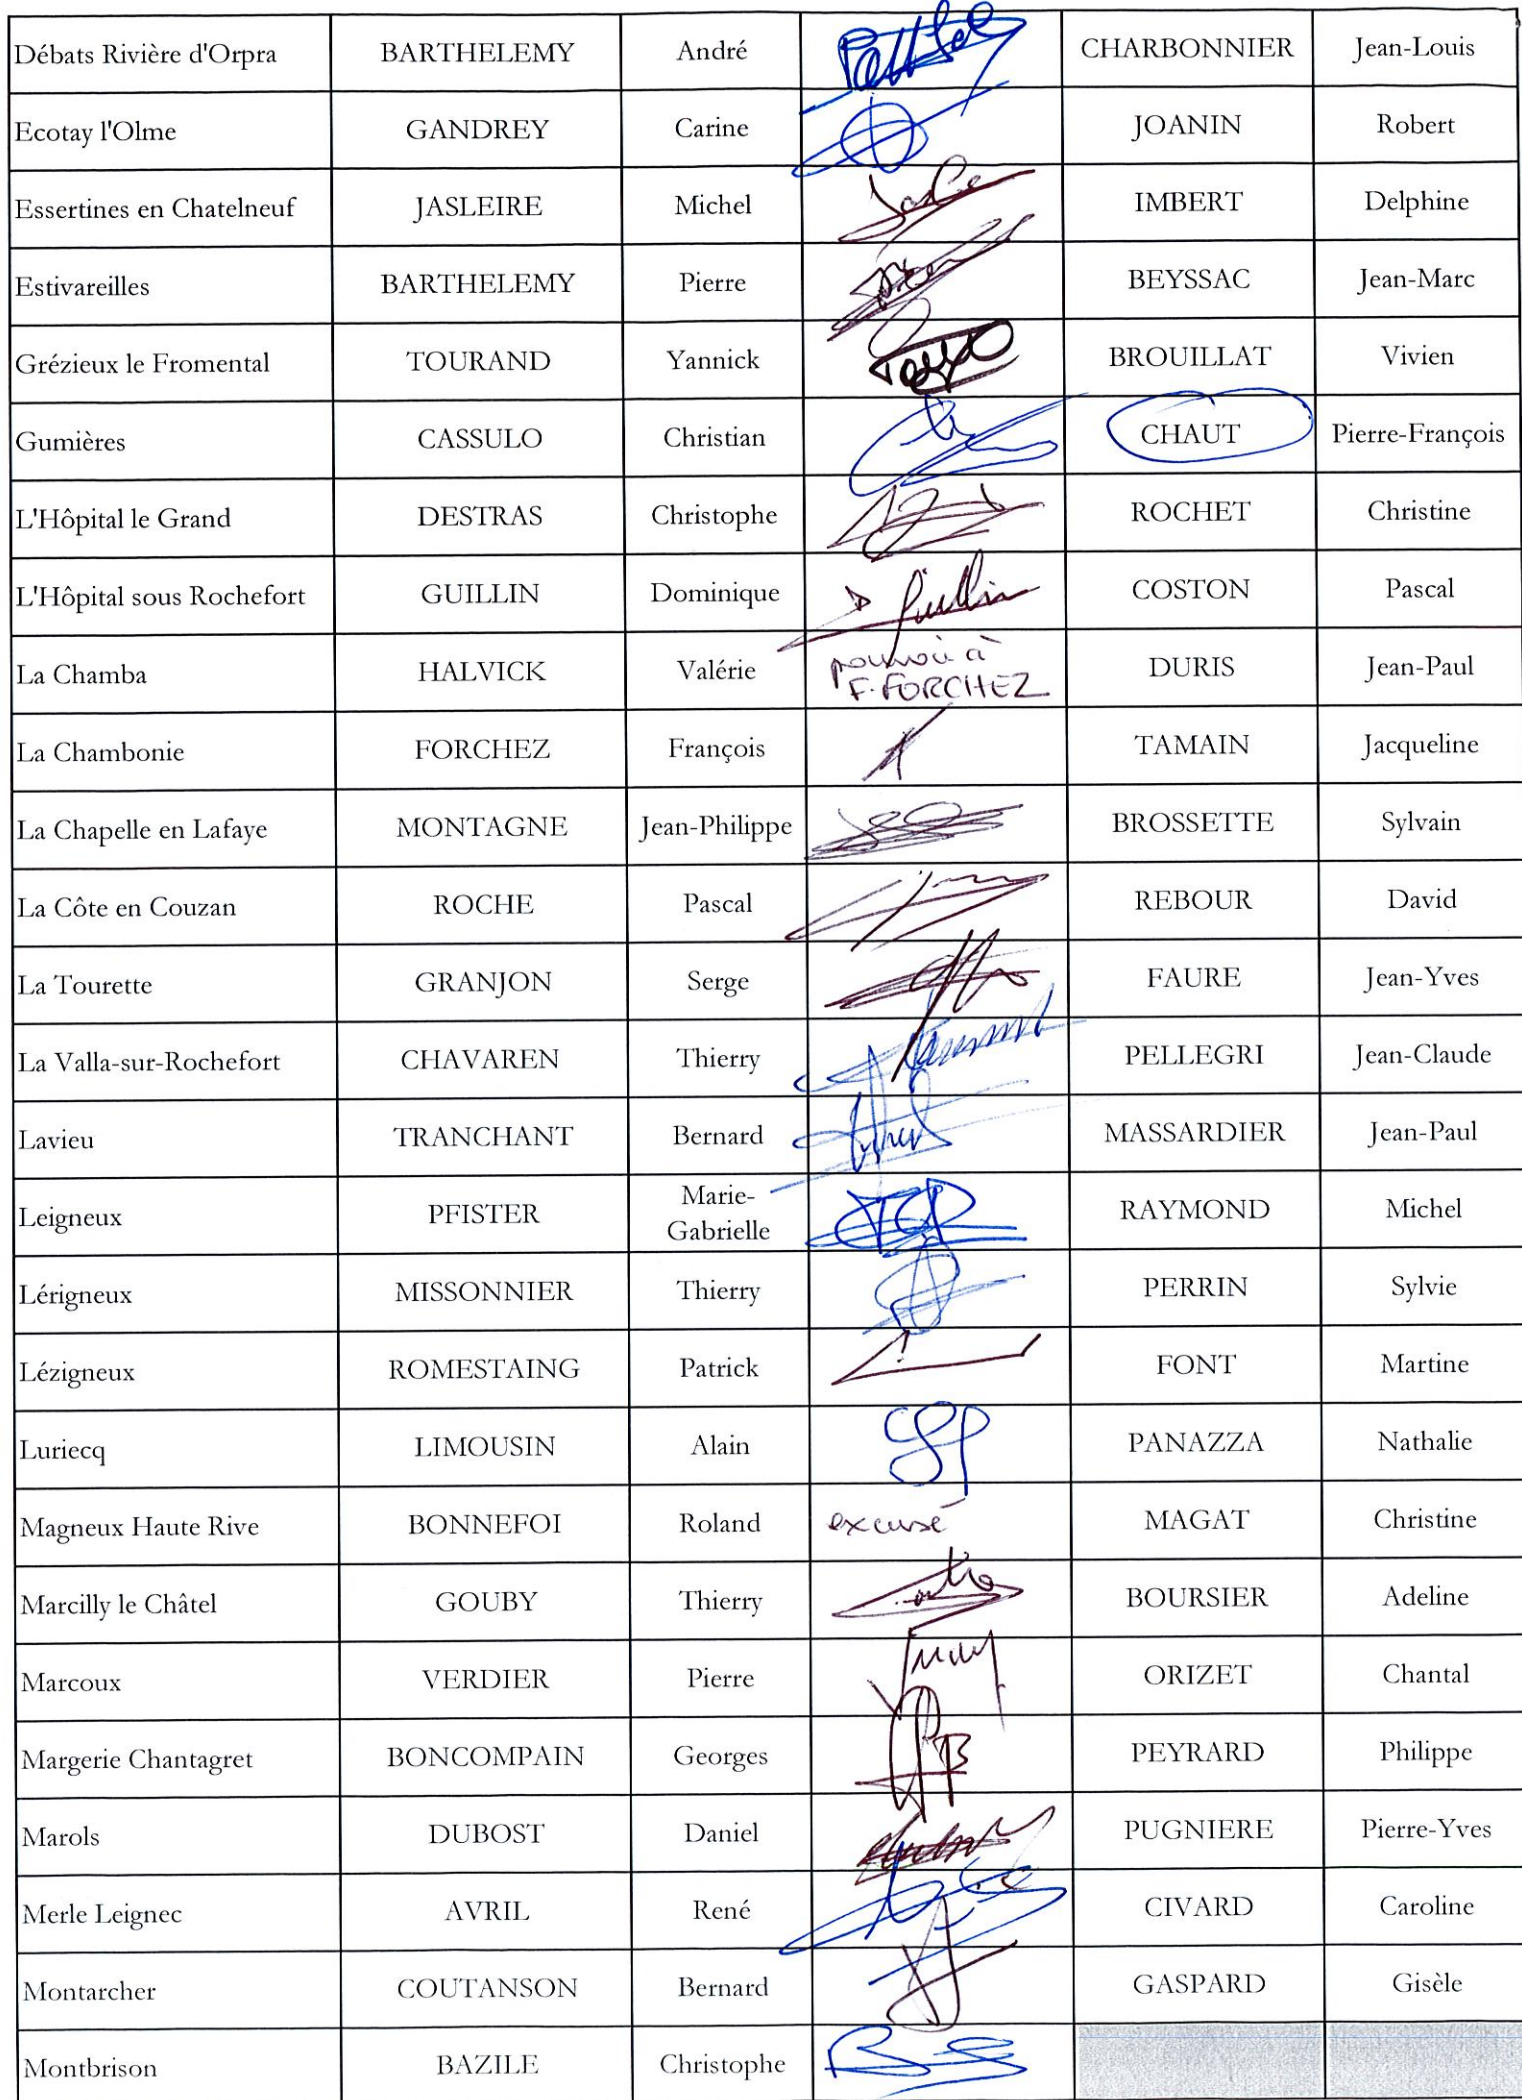 Débats Rivière d'Orpra BARTHELEMY André CHARBONNIER Jean-Louis
Ecotay l'Olme GANDREY Carine JOANIN Robert
Essertines en Chatelneuf JASLEIRE Michel IMBERT Delphine
Estivareilles BARTHELEMY Pierre BEYSSAC Jean-Marc
Grézieux le Fromental TOURAND Yannick BROUILLAT Vivien
Gumières CASSULO Christian CHAUT Pierre-François
L'Hôpital le Grand DESTRAS Christophe ROCHET Christine
L'Hôpital sous Rochefort GUILLIN Dominique Guillin COSTON Pascal
La Chamba HALVICK Valérie pouvoir à F. FORCHEZ DURIS Jean-Paul
La Chambonie FORCHEZ François TAMAIN Jacqueline
La Chapelle en Lafaye MONTAGNE Jean-Philippe BROSSETTE Sylvain
La Côte en Couzan ROCHE Pascal REBOUR David
La Tourette GRANJON Serge FAURE Jean-Yves
La Valla-sur-Rochefort CHAVAREN Thierry PELLEGRI Jean-Claude
Lavieu TRANCHANT Bernard MASSARDIER Jean-Paul
Leigneux PFISTER Marie-Gabrielle RAYMOND Michel
Lérigneux MISSONNIER Thierry PERRIN Sylvie
Lézigneux ROMESTAING Patrick FONT Martine
Luriecq LIMOUSIN Alain PANAZZA Nathalie
Magneux Haute Rive BONNEFOI Roland excusé MAGAT Christine
Marcilly le Châtel GOUBY Thierry BOURSIER Adeline
Marcoux VERDIER Pierre ORIZET Chantal
Margerie Chantagret BONCOMPAIN Georges PEYRARD Philippe
Marols DUBOST Daniel PUGNIERE Pierre-Yves
Merle Leignec AVRIL René CIVARD Caroline
Montarcher COUTANSON Bernard GASPARD Gisèle
Montbrison BAZILE Christophe